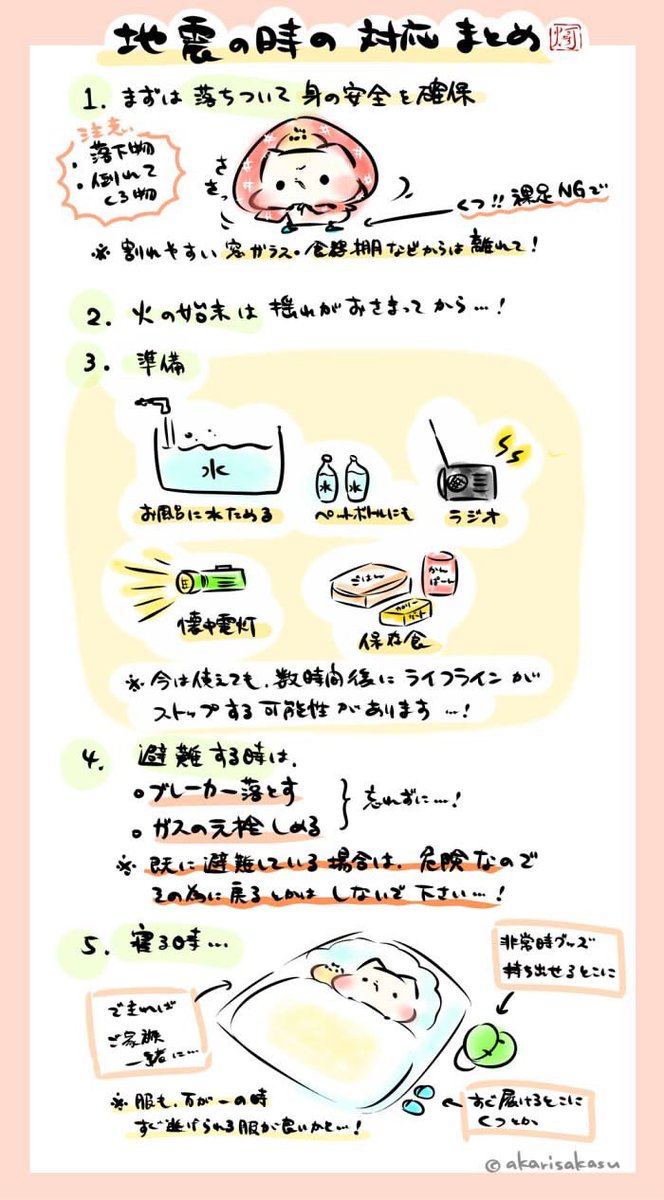 地震の時の対応まとめ
1. まずは落ちついて身の安全を確保
注意
・落下物
・倒れて
くる物
ささっ
くつ!!裸足NGで
※割れやすい窓ガラス・食器棚などからは離れて!
2. 火の始末は揺れがおさまってから…!
3. 準備
水
お風呂に水ためる
水 水
ペットボトルにも
ラジオ
懐中電灯
ごはん
かん
ぱーん
カロリー
保存食
※今は使えても、数時間後にライフラインが
ストップする可能性があります…!
4. 避難する時は、
○ブレーカー落とす
○ガスの元栓しめる
忘れずに…!
※既に避難している場合は、危険なので
その為に戻るとかはしないで下さい…!
5. 寝る時…
非常時グッズ
持ち出せるとこに
できれば
ご家族
一緒に…
※服も、万が一の時
すぐ逃げられる服が良いかと…!
すぐ履けるとこに
くつとか
©akarisakasu